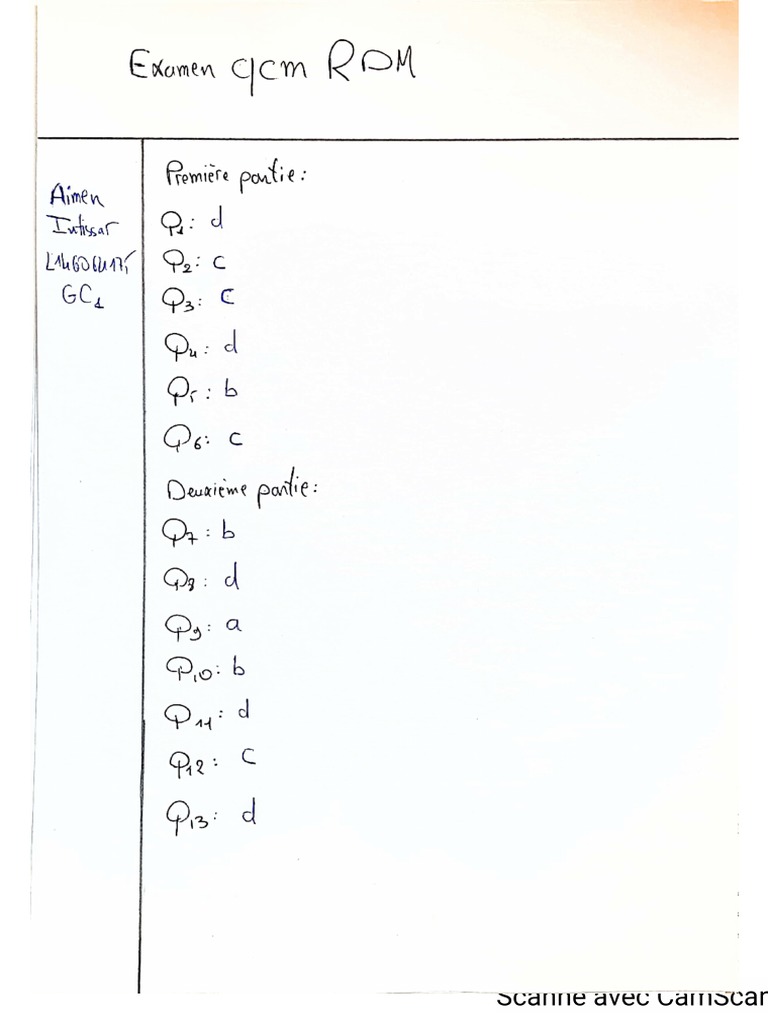 Examen qcm RDM
Aimen
Intissar
GC1
Première partie:
Q1: d
Q2: c
Q3: c
Q4: d
Q5: b
Q6: c
Deuxième partie:
Q7: b
Q8: d
Q9: a
Q10: b
Q11: d
Q12: c
Q13: d
Scanné avec CamScan